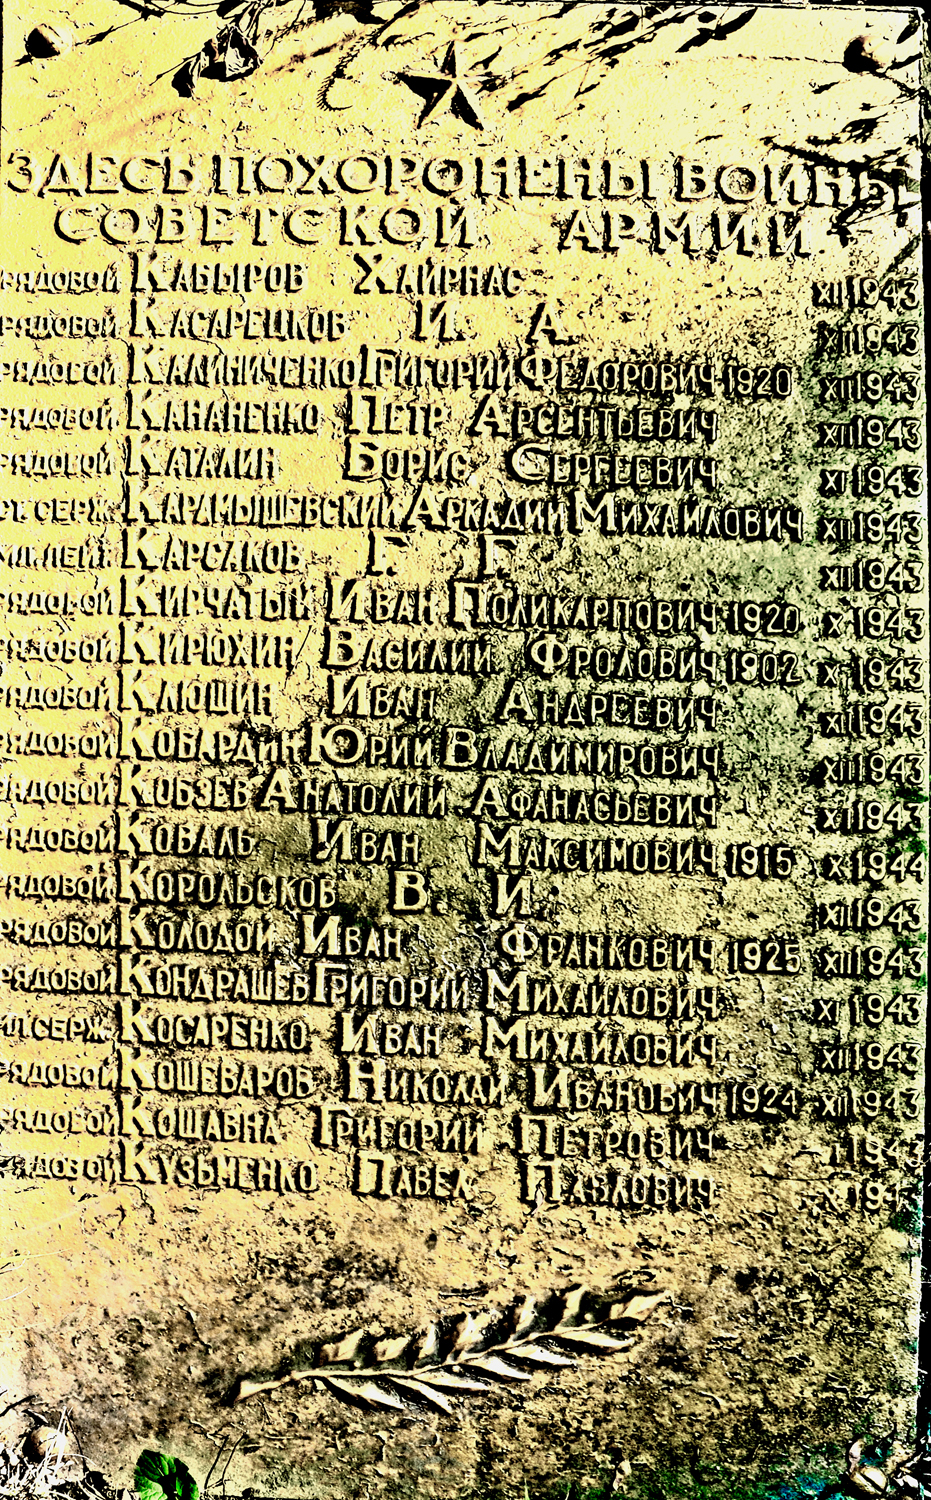 ЗДЕСЬ ПОХОРОНЕНЫ ВОИНЫ
СОВЕТСКОЙ АРМИИ
РЯДОВОЙ КАБЫРОВ ХАЙРНАС XII 1943
РЯДОВОЙ КАСАРЕЦКОВ И. А. XII 1943
РЯДОВОЙ КАЛИНИЧЕНКО ГРИГОРИЙ ФЕДОРОВИЧ 1920 XII 1943
РЯДОВОЙ КАНАНЕНКО ПЕТР АРСЕНТЬЕВИЧ XII 1943
РЯДОВОЙ КАТАЛИН БОРИС СЕРГЕЕВИЧ XI 1943
СТ. СЕРЖ. КАРАМЫШЕВСКИЙ АРКАДИЙ МИХАЙЛОВИЧ XII 1943
МЛ. ЛЕЙТ. КАРСАКОВ Г. Г. XII 1943
РЯДОВОЙ КИРЧАТЫЙ ИВАН ПОЛИКАРПОВИЧ 1920 X 1943
РЯДОВОЙ КИРЮХИН ВАСИЛИЙ ФРОЛОВИЧ 1902 1943
РЯДОВОЙ КЛЮШИН ИВАН АНДРЕЕВИЧ XII 1943
РЯДОВОЙ КОБАРДИН ЮРИЙ ВЛАДИМИРОВИЧ XII 1943
РЯДОВОЙ КОБЗЕВ АНАТОЛИЙ АФАНАСЬЕВИЧ XII 1943
РЯДОВОЙ КОВАЛЬ ИВАН МАКСИМОВИЧ 1915 X 1944
РЯДОВОЙ КОРОЛЬСКОВ В. И. XII 1943
РЯДОВОЙ КОЛОДОЙ ИВАН ФРАНКОВИЧ 1925 XII 1943
РЯДОВОЙ КОНДРАШЕВ ГРИГОРИЙ МИХАЙЛОВИЧ XI 1943
МЛ. СЕРЖ. КОСАРЕНКО ИВАН МИХАЙЛОВИЧ XII 1943
РЯДОВОЙ КОШЕВАРОВ НИКОЛАЙ ИВАНОВИЧ 1924 XII 1943
РЯДОВОЙ КОШАВКА ГРИГОРИЙ ПЕТРОВИЧ 1943
РЯДОВОЙ КУЗЬМЕНКО ПАВЕЛ ПАВЛОВИЧ